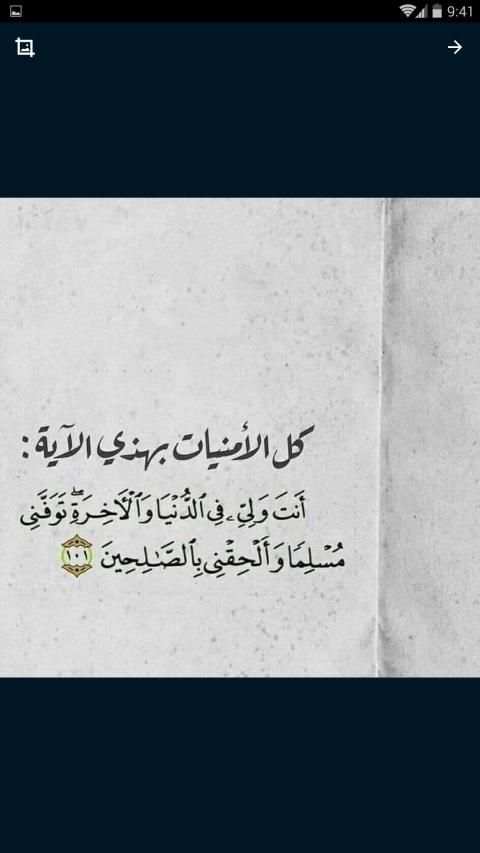 9:41
كل الأمنيات بهذي الآية :
أَنتَ وَلِيِّۦ فِي ٱلدُّنۡيَا وَٱلۡأٓخِرَةِۖ تَوَفَّنِي
مُسۡلِمٗا وَأَلۡحِقۡنِي بِٱلصَّٰلِحِينَ ١٠١